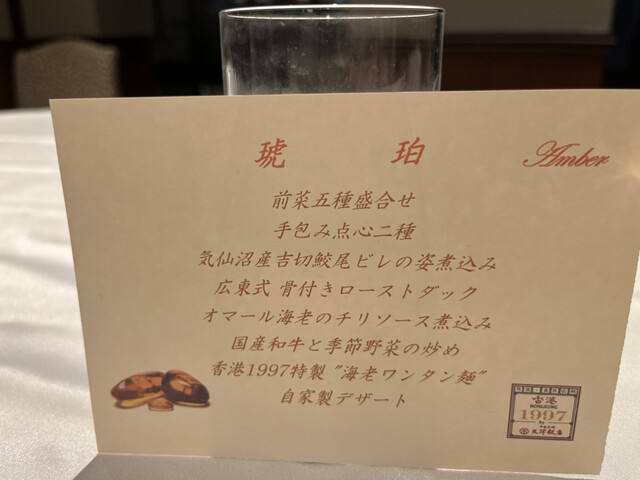 琥珀 Amber
前菜五種盛合せ
手包み点心二種
気仙沼産吉切鮫尾ビレの姿煮込み
広東式 骨付きローストダック
オマール海老のチリソース煮込み
国産和牛と季節野菜の炒め
香港1997特製〝海老ワンタン麺〟
自家製デザート
香港
HONG KONG
1997
by
天津飯店